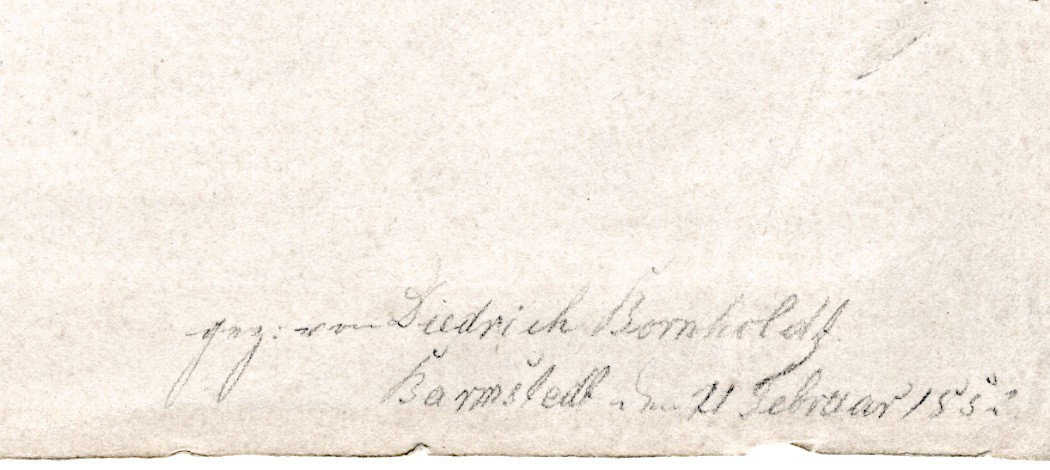 gez: von Diedrich Bornholdt.
Barmstedt den 21 Februar